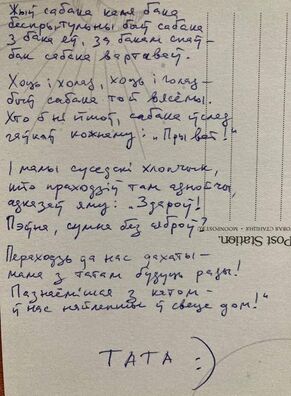 Жыў сабака каля бака
беспрытульны быў сабака
З бака еў, за бакам спаў –
бак сабака вартаваў.
Хоць і холад, хоць і голад –
быў сабака той вясёлы.
Хто б ні йшоў, сабака ўслед
гаўкаў кожнаму: „Прывет!“
І малы суседскі хлопчык,
што праходзіў там аднойчы,
адказаў яму: „Здароў!
Пэўна, сумна без сяброў?
Пераходзь да нас дахаты –
мама з татам будуць рады!
Пазнаёмішся з катом –
ў нас найлепшы ў свеце дом!“
ТАТА :)
Post Station.